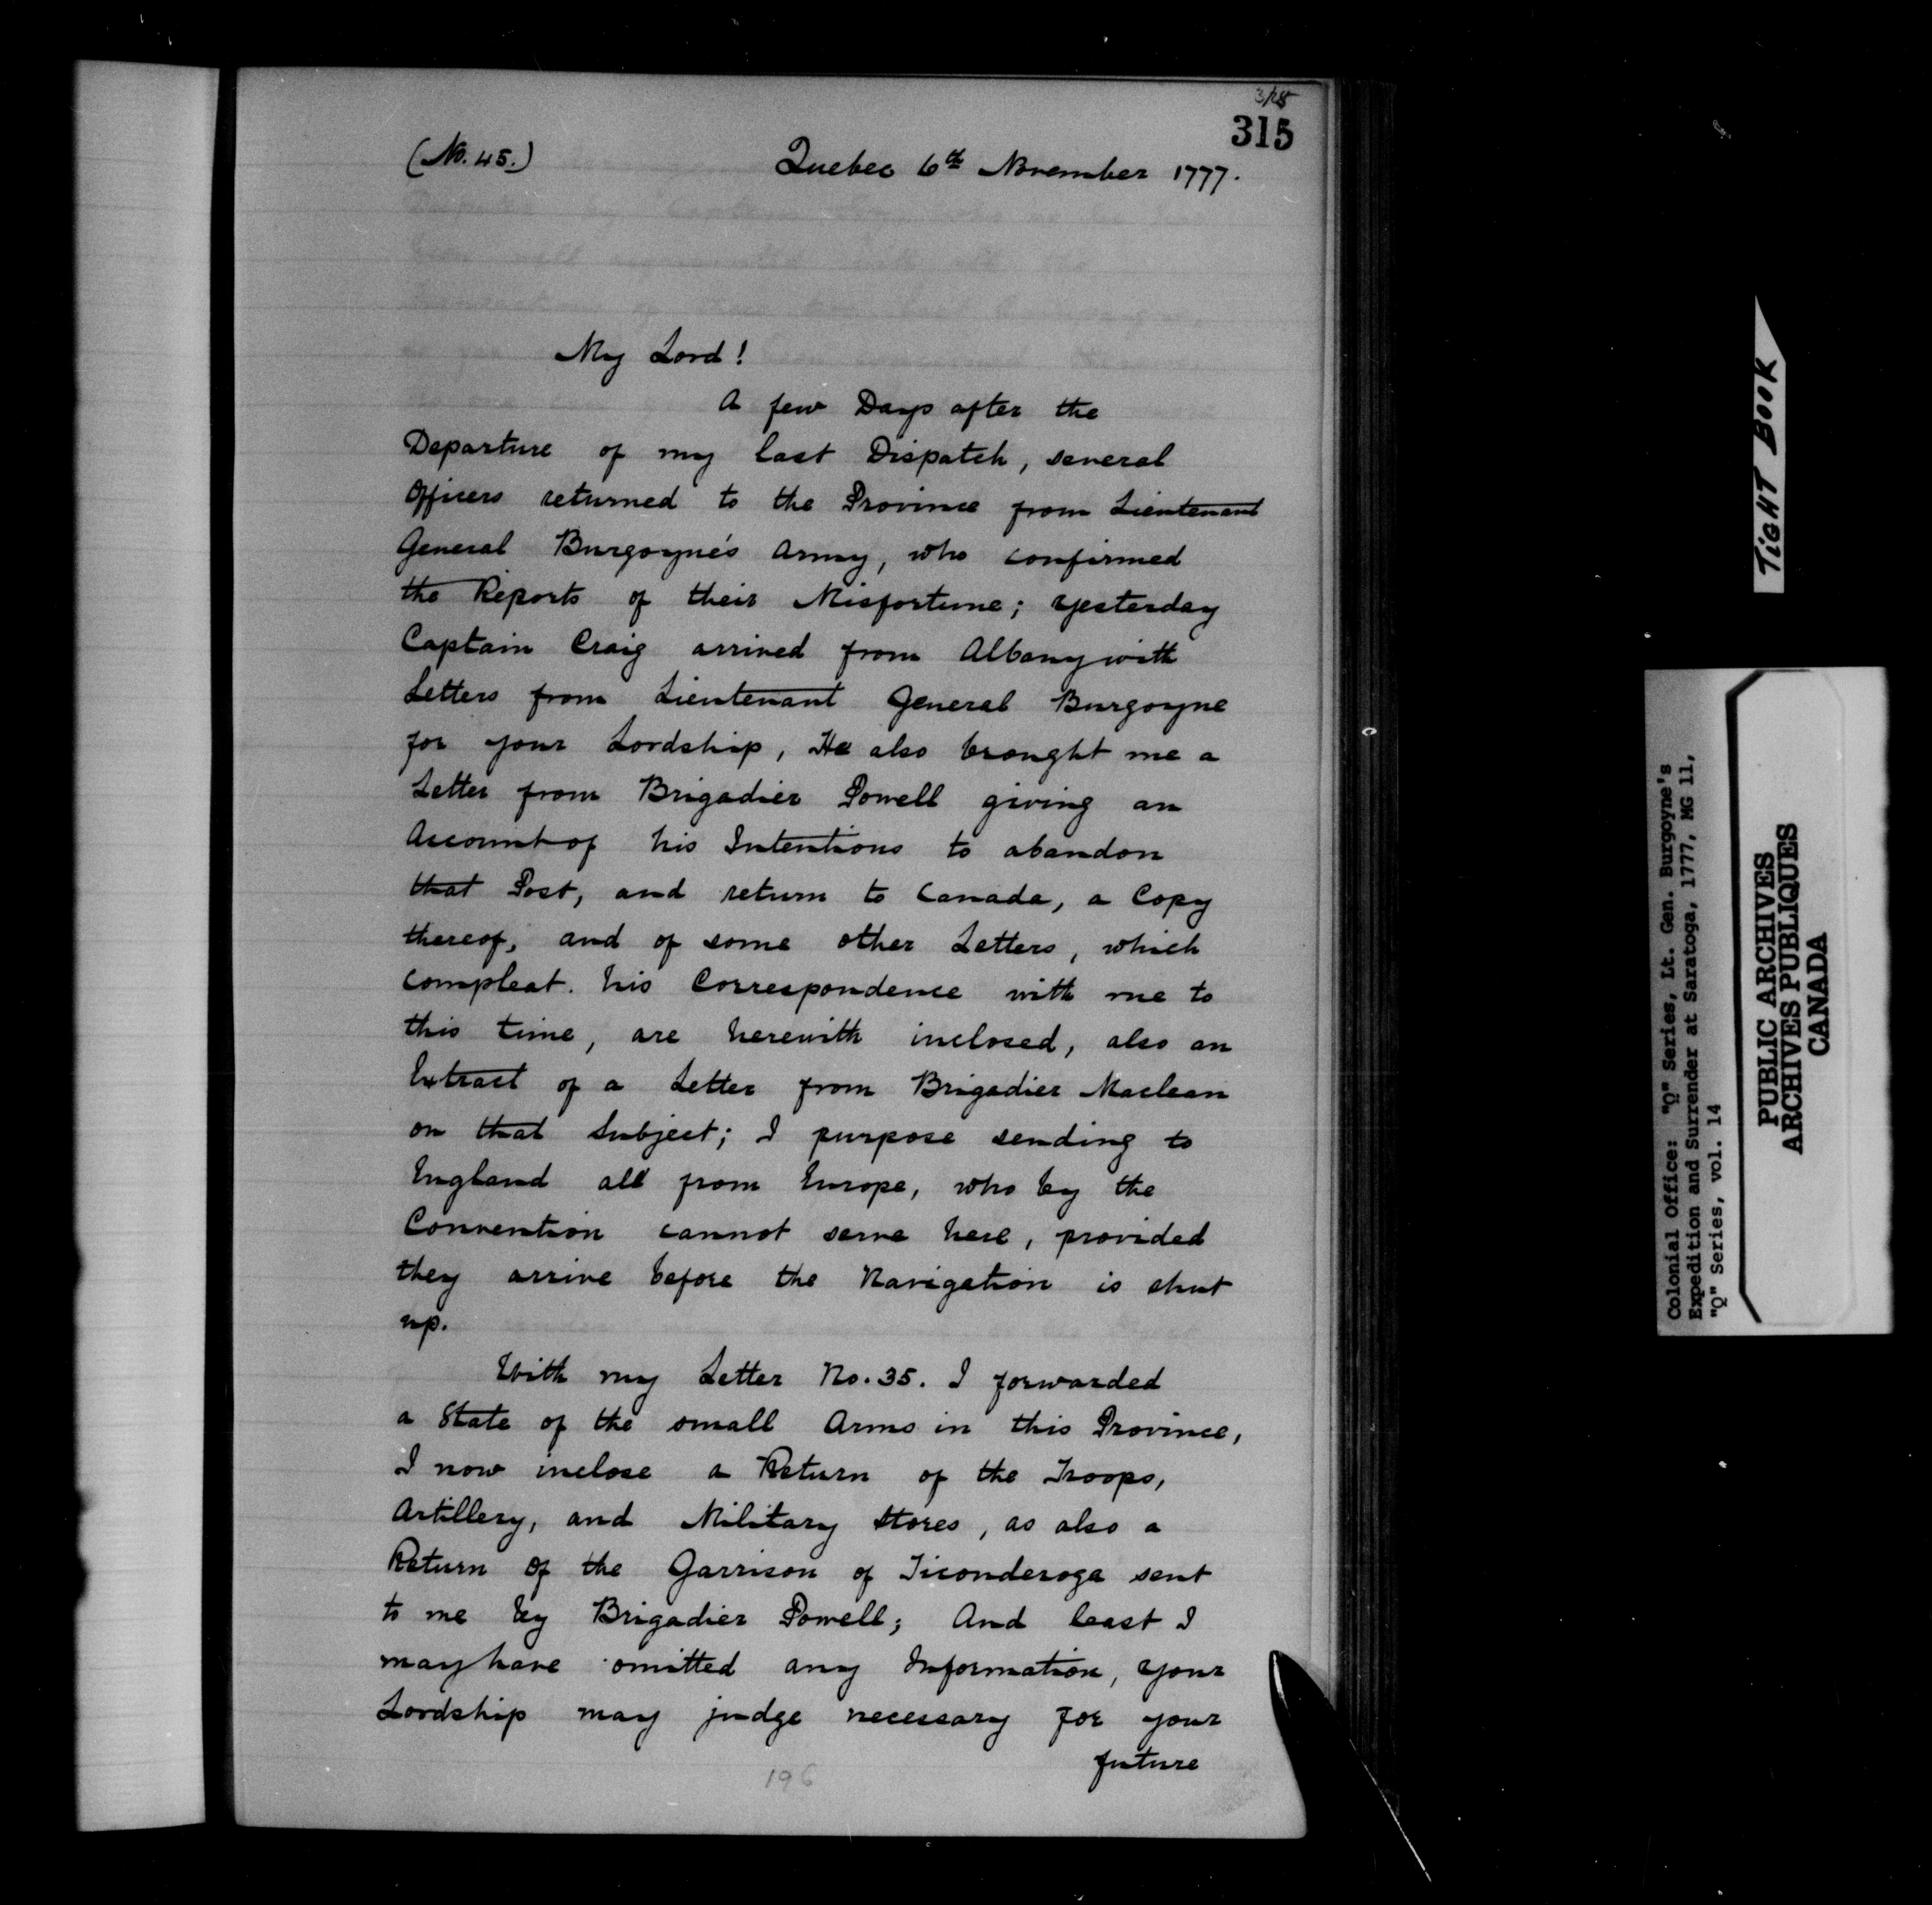 315
(No. 45.)
Quebec 6th November 1777.
My Lord!
A few Days after the
Departure of my last Dispatch, several
Officers returned to the Province from Lieutenant
General Burgoyne's Army, who confirmed
the Reports of their Misfortune; yesterday
Captain Craig arrived from Albany with
Letters from Lieutenant General Burgoyne
for your Lordship, He also brought me a
Letter from Brigadier Powell giving an
Account of his Intentions to abandon
that Post, and return to Canada, a Copy
thereof, and of some other Letters, which
compleat. his Correspondence with me to
this time, are herewith inclosed, also an
Extract of a Letter from Brigadier Maclean
on that Subject; I purpose sending to
England all from Europe, who by the
Convention cannot serve here, provided
they arrive before the Navigation is shut
up.
With my Letter No. 35. I forwarded
a State of the small Arms in this Province,
I now inclose a Return of the Troops,
Artillery, and Military Stores, as also a
Return of the Garrison of Ticonderoga sent
to me by Brigadier Powell; And least I
may have omitted any Information, your
Lordship may judge necessary for your
future
196
TIGHT BOOK
Colonial Office: "Q" Series, Lt. Gen. Burgoyne's
Expedition and Surrender at Saratoga, 1777, MG 11,
"Q" Series, vol. 14
PUBLIC ARCHIVES
ARCHIVES PUBLIQUES
CANADA